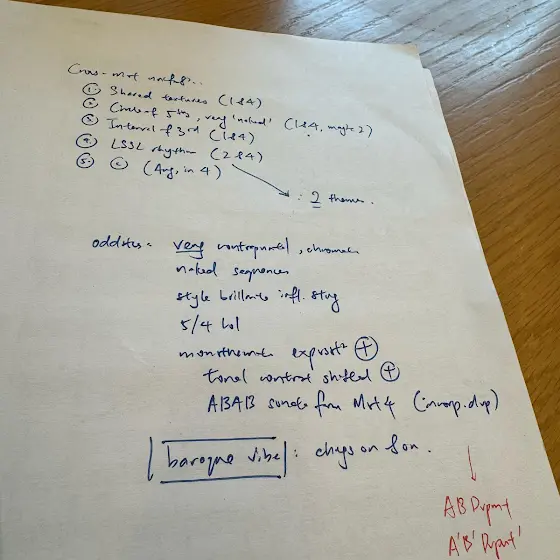 Cross-mvt motifs...
① Shared textures (1&4)
② Circle of 5ths, very 'naked' (1&4, maybe 2)
③ Interval of 3rd (1&4)
④ LSSL rhythm (2&4)
⑤ © (Aug, in 4)
: 2 themes.
oddities = very contrapuntal, chromatic
naked sequences
style brillante infl. stung
5/4 lol
monothematic exposit² ⊕
tonal contrast shifted ⊕
ABAB sonata form Mvt 4 (incorp. dvp)
baroque vibe : chugs on & on.
AB Dvpmt
A'B' Dvpmt'